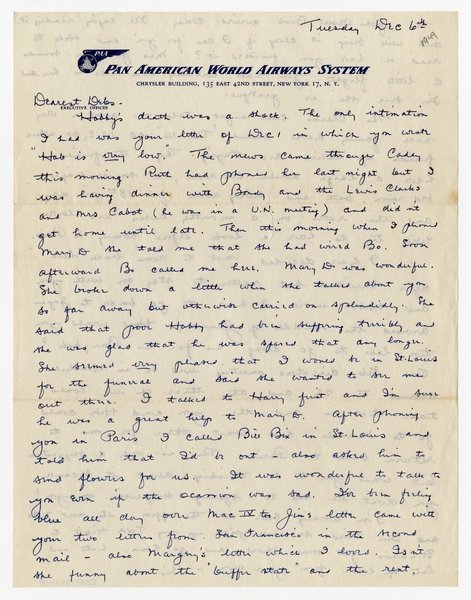 Tuesday Dec 6th
1949
PAA
PAN AMERICAN WORLD AIRWAYS SYSTEM
CHRYSLER BUILDING, 135 EAST 42ND STREET, NEW YORK 17, N. Y.
Dearest Debs.
EXECUTIVE OFFICES
Habby's death was a shock. The only intimation
I had was your letter of Dec 1 in which you wrote
"Hab is very low." The news came through Cades
this morning. Ruth had phoned her last night but I
was having dinner with Bondy and the Lewis Clarks
and Mrs. Cabot (he was in a U.N. meeting) and didn't
get home until late. Then this morning when I phoned
Mary D she told me that she had wired Bo. Soon
afterward Bo called me here. Mary D was wonderful.
She broke down a little when she talked about you
so far away but otherwise carried on splendidly. She
said that poor Habby had been suffering terribly and
she was glad that he was spared that any longer.
She seemed very pleased that I would be in St. Louis
for the funeral and said she wanted to see me
out there. I talked to Harry first and I'm sure
he was a great help to Mary D. After phoning
you in Paris I called Bill Bix in St. Louis and
told him that I'd be out - also asked him to
send flowers for us. It was wonderful to talk to
you even if the occasion was sad. I've been feeling
blue all day over Mac IV too. Jim's letter came with
your two letters from San Francisco in the second
mail - also Margery's letter which I loved. Isn't
she funny about the "buffer state" and the rent.